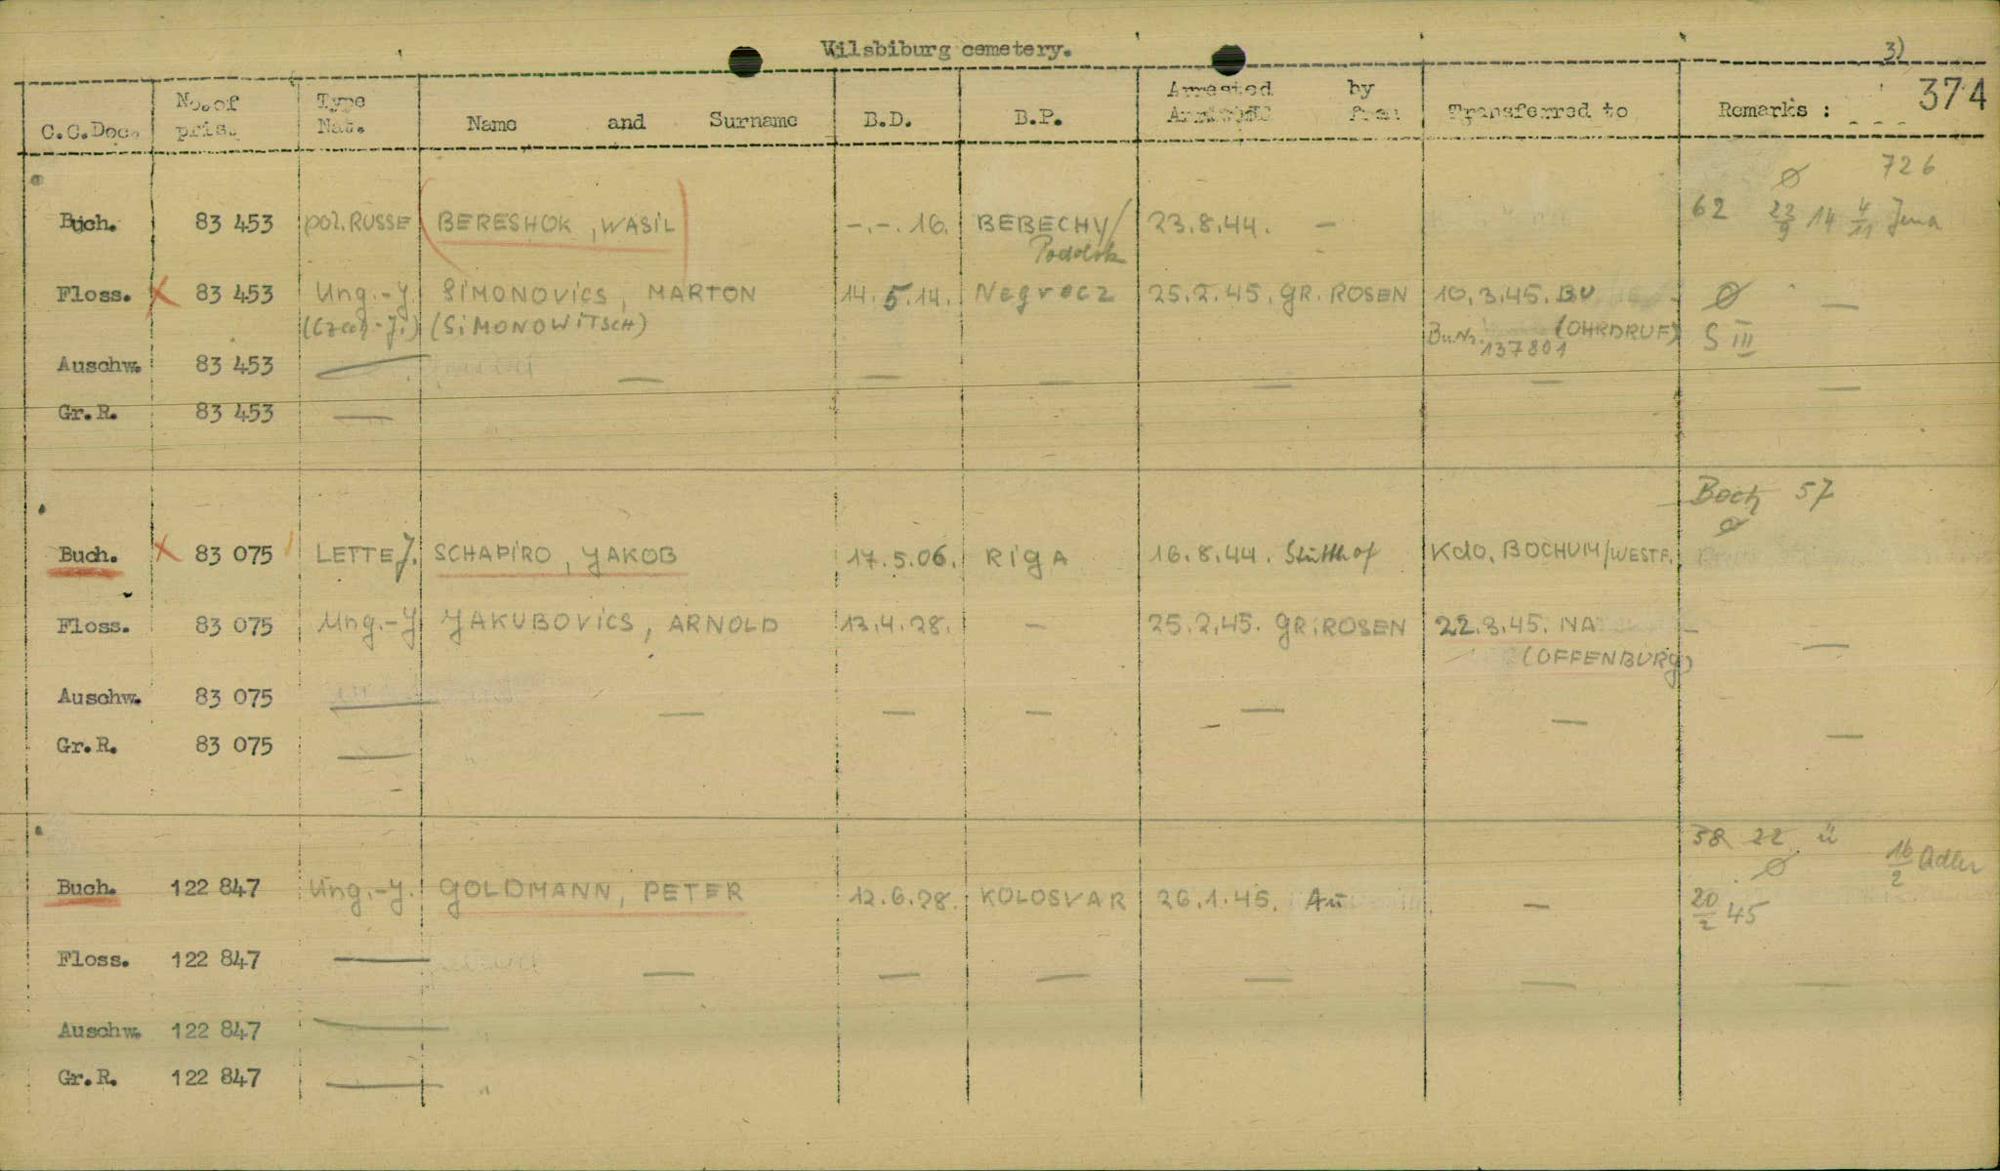 Vilsbiburg cemetery.
3)
374
C.C.Doc. No. of pris. Type Nat. Name and Surname B.D. B.P. Arrested by Transferred to Remarks :
726
Buch. 83 453 pol. RUSSE BERESHOK, WASIL -.-. 16. BEBECHY/ 23.8.44. - 62 23/9 14 4/11 Jena
Podolsk
Floss. X 83 453 Ung.-J. SIMONOVICS, MARTON 14.5.14. Negrocz 25.2.45. GR. ROSEN 10.3.45. BU Ø —
(Czech-J.) (SIMONOWITSCH) Bu.Nr. 137801 (OHRDRUF) S III
Auschw. 83 453 — — — — — — —
Gr.R. 83 453 —
Boch 57
Ø
Buch. X 83 075 LETTE J. SCHAPIRO, JAKOB 17.5.06. RIGA 16.8.44. Stutthof Kdo. BOCHUM/WESTF.
Floss. 83 075 Ung.-J JAKUBOVICS, ARNOLD 13.4.28. — 25.2.45. GR.ROSEN 22.3.45. NA —
(OFFENBURG)
Auschw. 83 075 — — — — — — —
Gr.R. 83 075 —
58 22 ü
Ø 16/2 Adler
Buch. 122 847 Ung.-J. GOLDMANN, PETER 12.6.28. KOLOSVAR 26.1.45. Au — 20/2 45
Floss. 122 847 — — — — — — —
Auschw. 122 847 —
Gr.R. 122 847 —